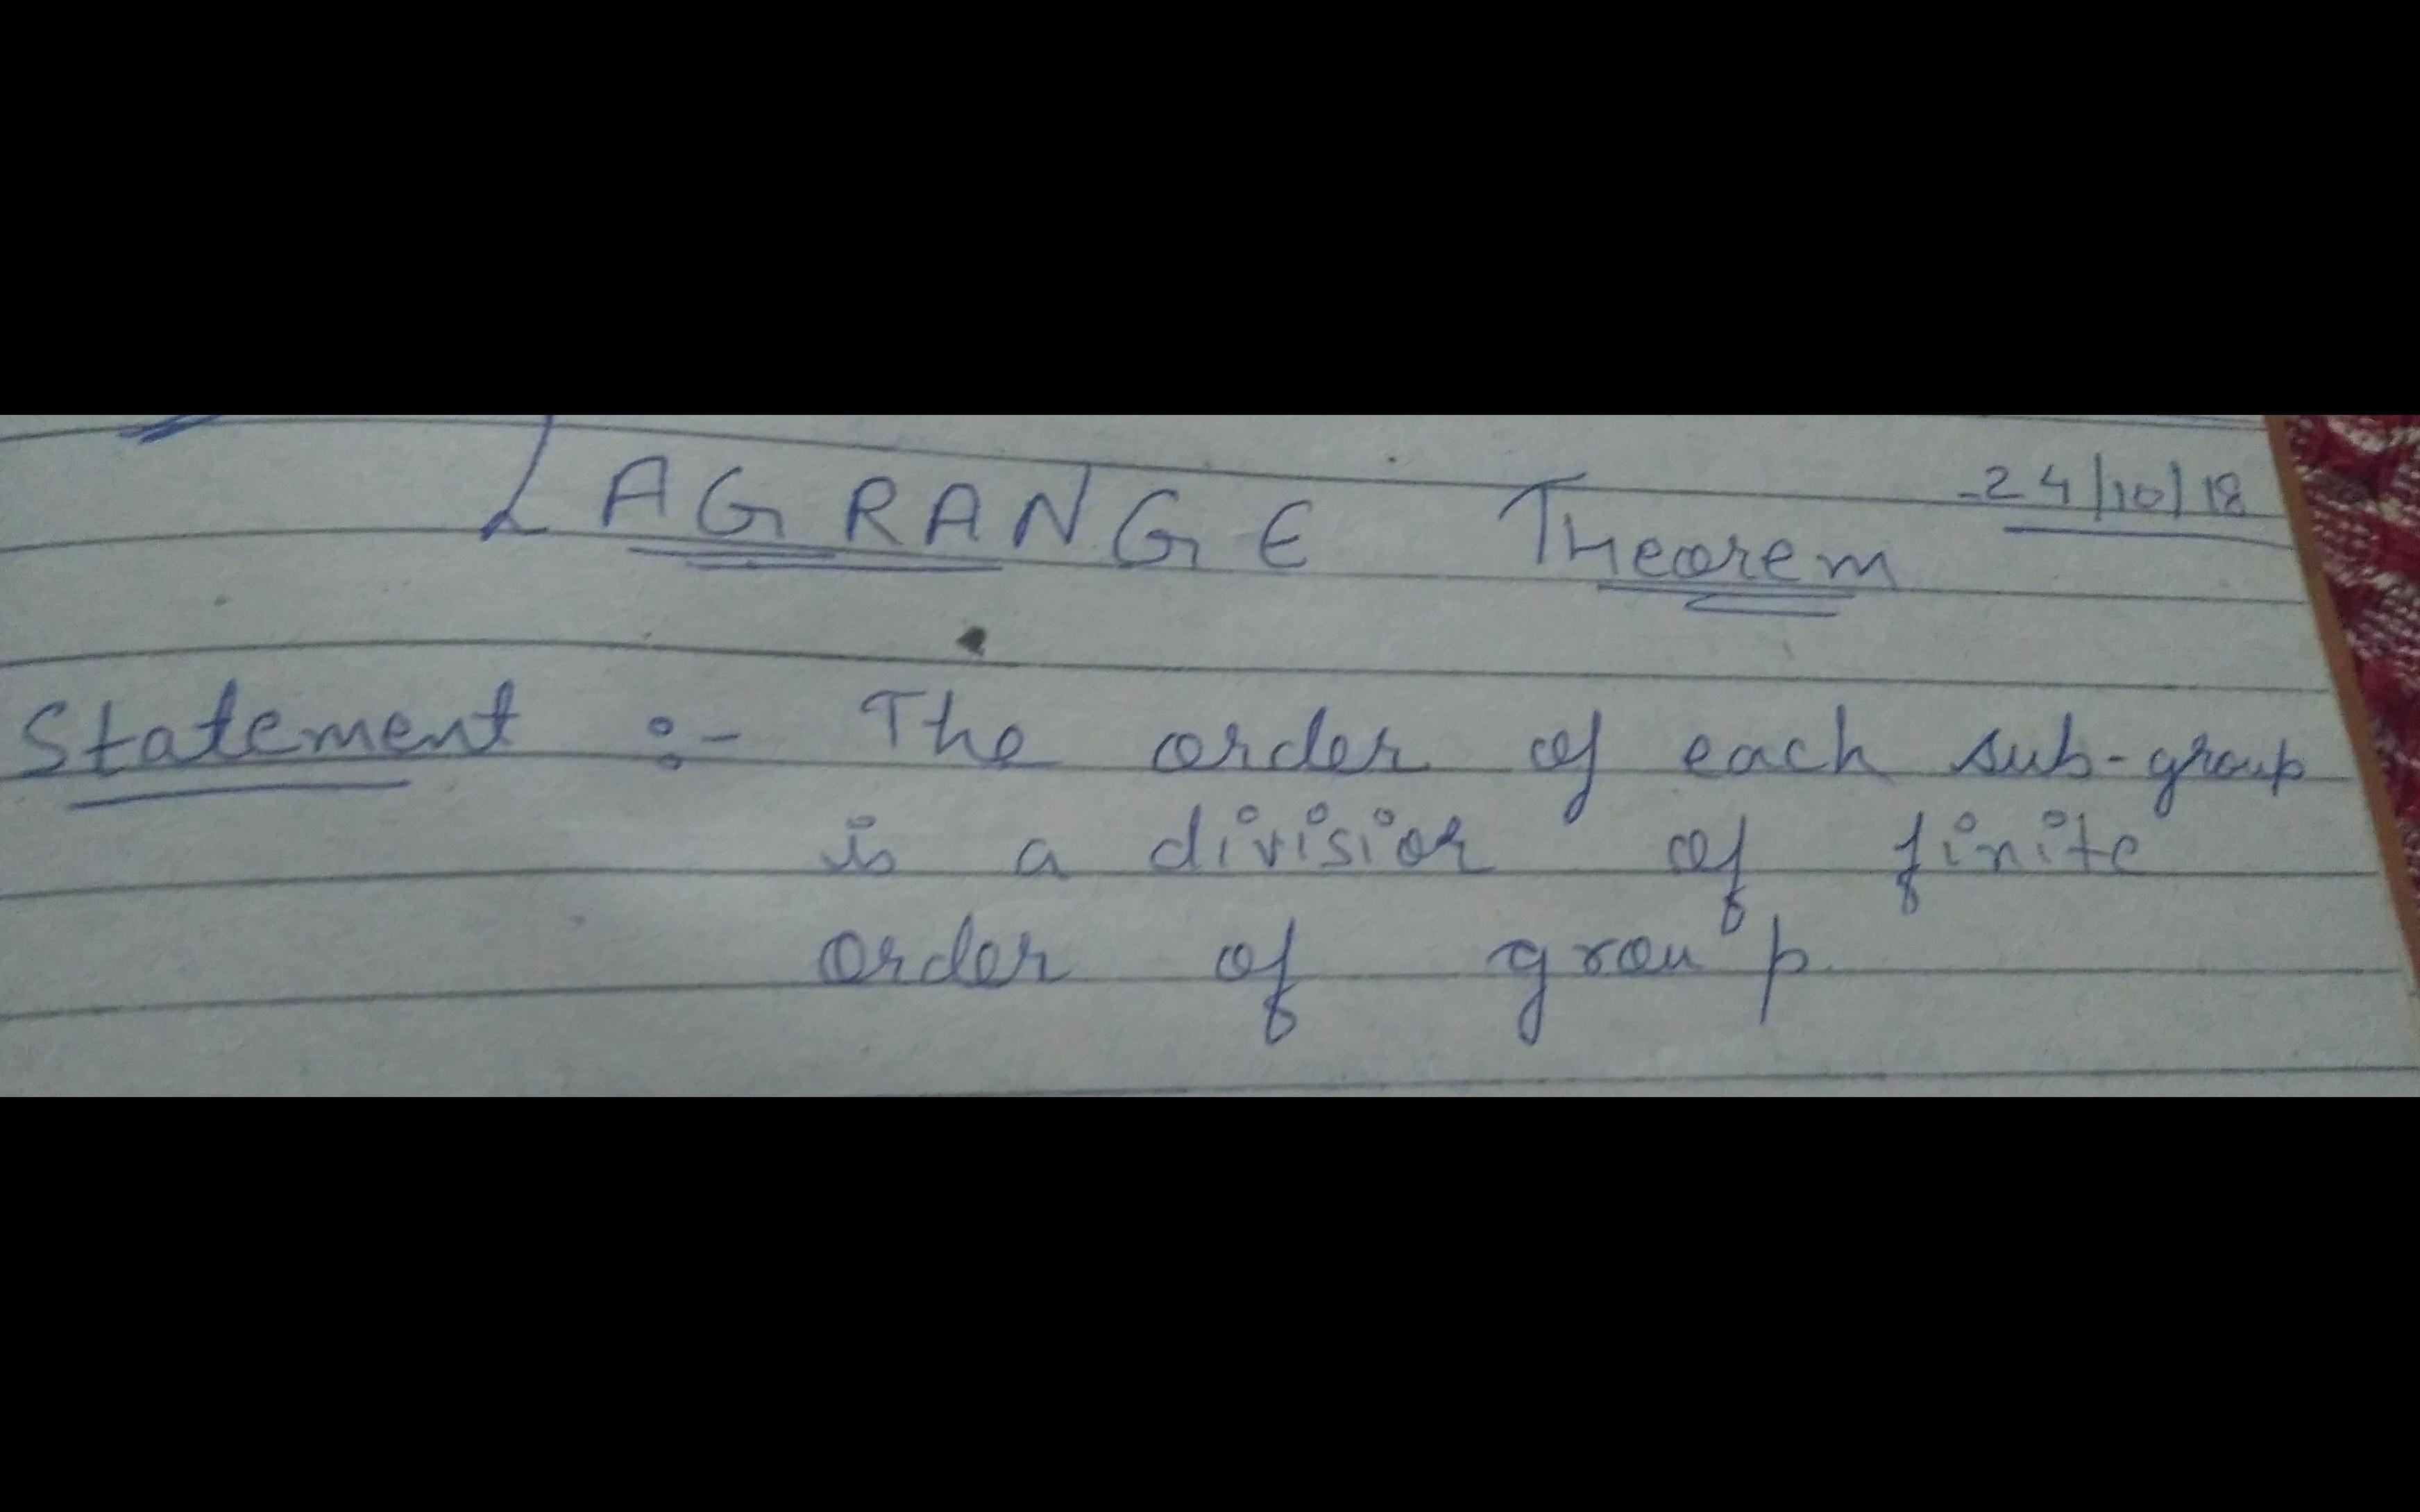 LAGRANGE Theorem 24/10/18
Statement :- The order of each sub-group
is a divisior of finite
order of group.